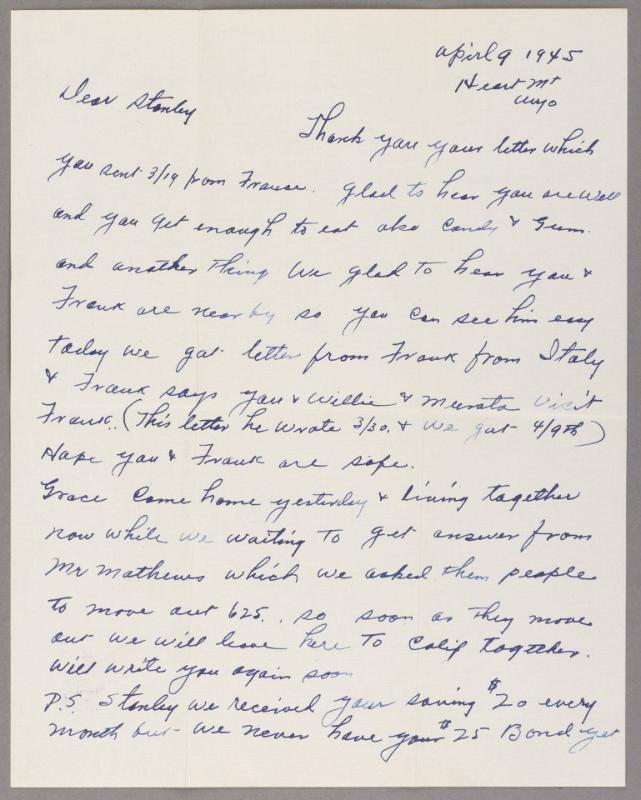 April 9 1945
Heart Mt
Wyo
Dear Stanley
Thank you your letter which
you sent 3/19 from France. Glad to hear you are well
and you get enough to eat also Candy & Gum.
and another thing We glad to hear you &
Frank are near by so you can see him easy
today we got letter from Frank from Italy
& Frank says you & Willie & Murata visit
Frank. (This letter he wrote 3/30. & we got 4/9th)
Hope you & Frank are safe.
Grace Come home yesterday & living together
now while we waiting to get answer from
Mr Mathews which we asked them people
to move out 625., so soon as They move
out we will leave here To Calif together.
Will write you again soon
P.S. Stanley we received your saving $20 every
month but we never have your $25 Bond yet